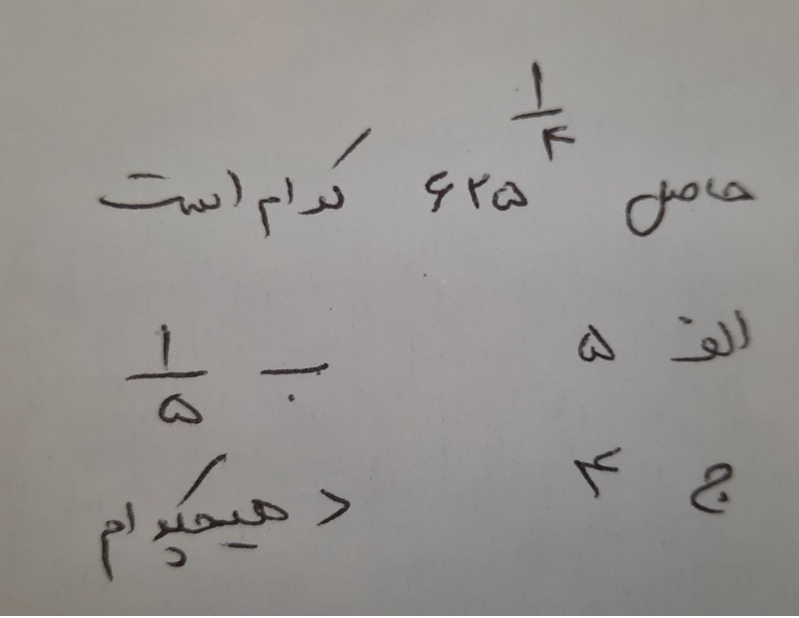 حاصل ۶۲۵^{۱/۴} کدام است
الف ۵ ب ۱/۵
ج ۴ د هیچکدام